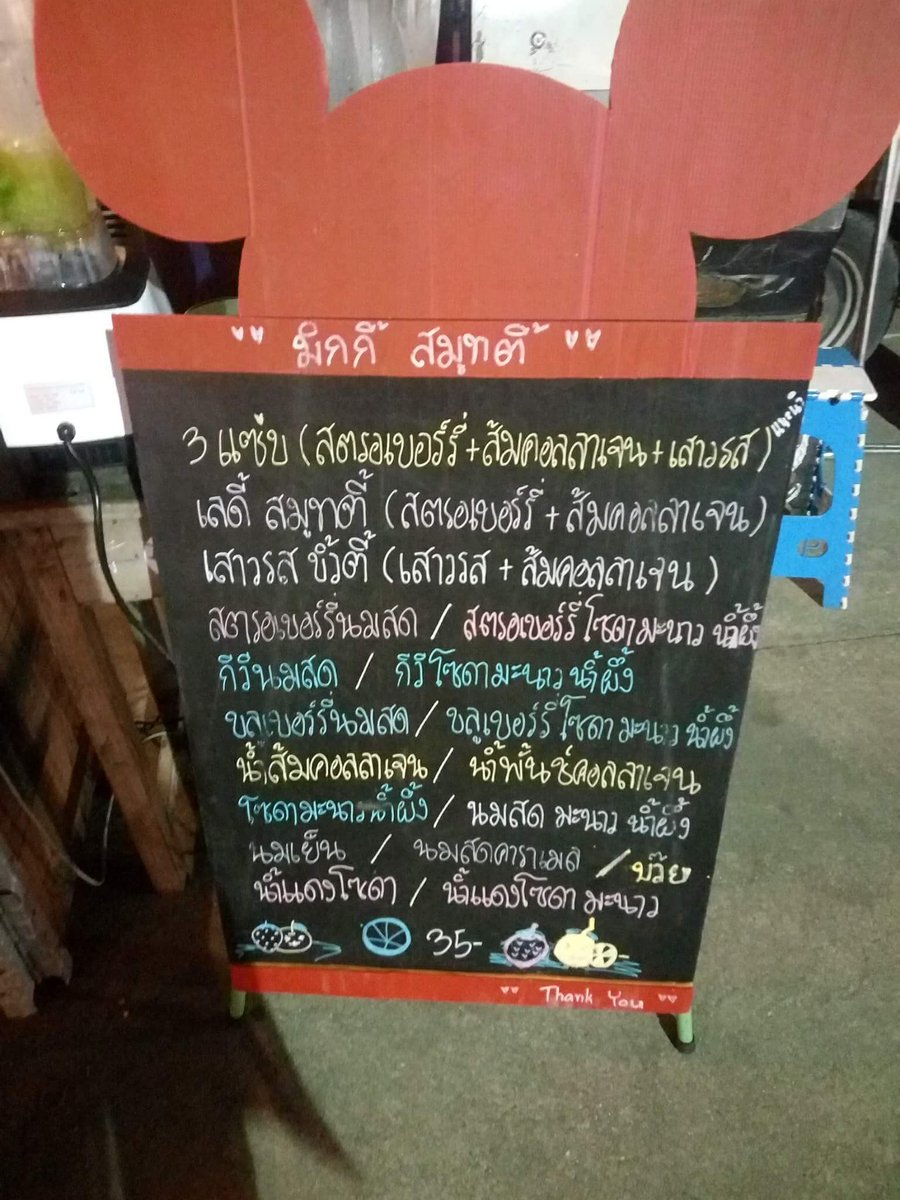 มิกกี้ สมูทตี้
3 แซ่บ (สตรอเบอร์รี่+ส้มคอลลาเจน+เสาวรส) แนะนำ
เลดี้ สมูทตี้ (สตรอเบอร์รี่+ส้มคอลลาเจน)
เสาวรส บิ้วตี้ (เสาวรส+ส้มคอลลาเจน)
สตรอเบอร์รี่นมสด / สตรอเบอร์รี่โซดามะนาว น้ำผึ้ง
กีวีนมสด / กีวีโซดามะนาว น้ำผึ้ง
บลูเบอร์รี่นมสด / บลูเบอร์รี่โซดา มะนาว น้ำผึ้ง
น้ำส้มคอลลาเจน / น้ำพั้นช์คอลลาเจน
โซดามะนาวน้ำผึ้ง / นมสด มะนาว น้ำผึ้ง
นมเย็น / นมสดคาราเมล / บ๊วย
น้ำแดงโซดา / น้ำแดงโซดา มะนาว
35-
Thank You